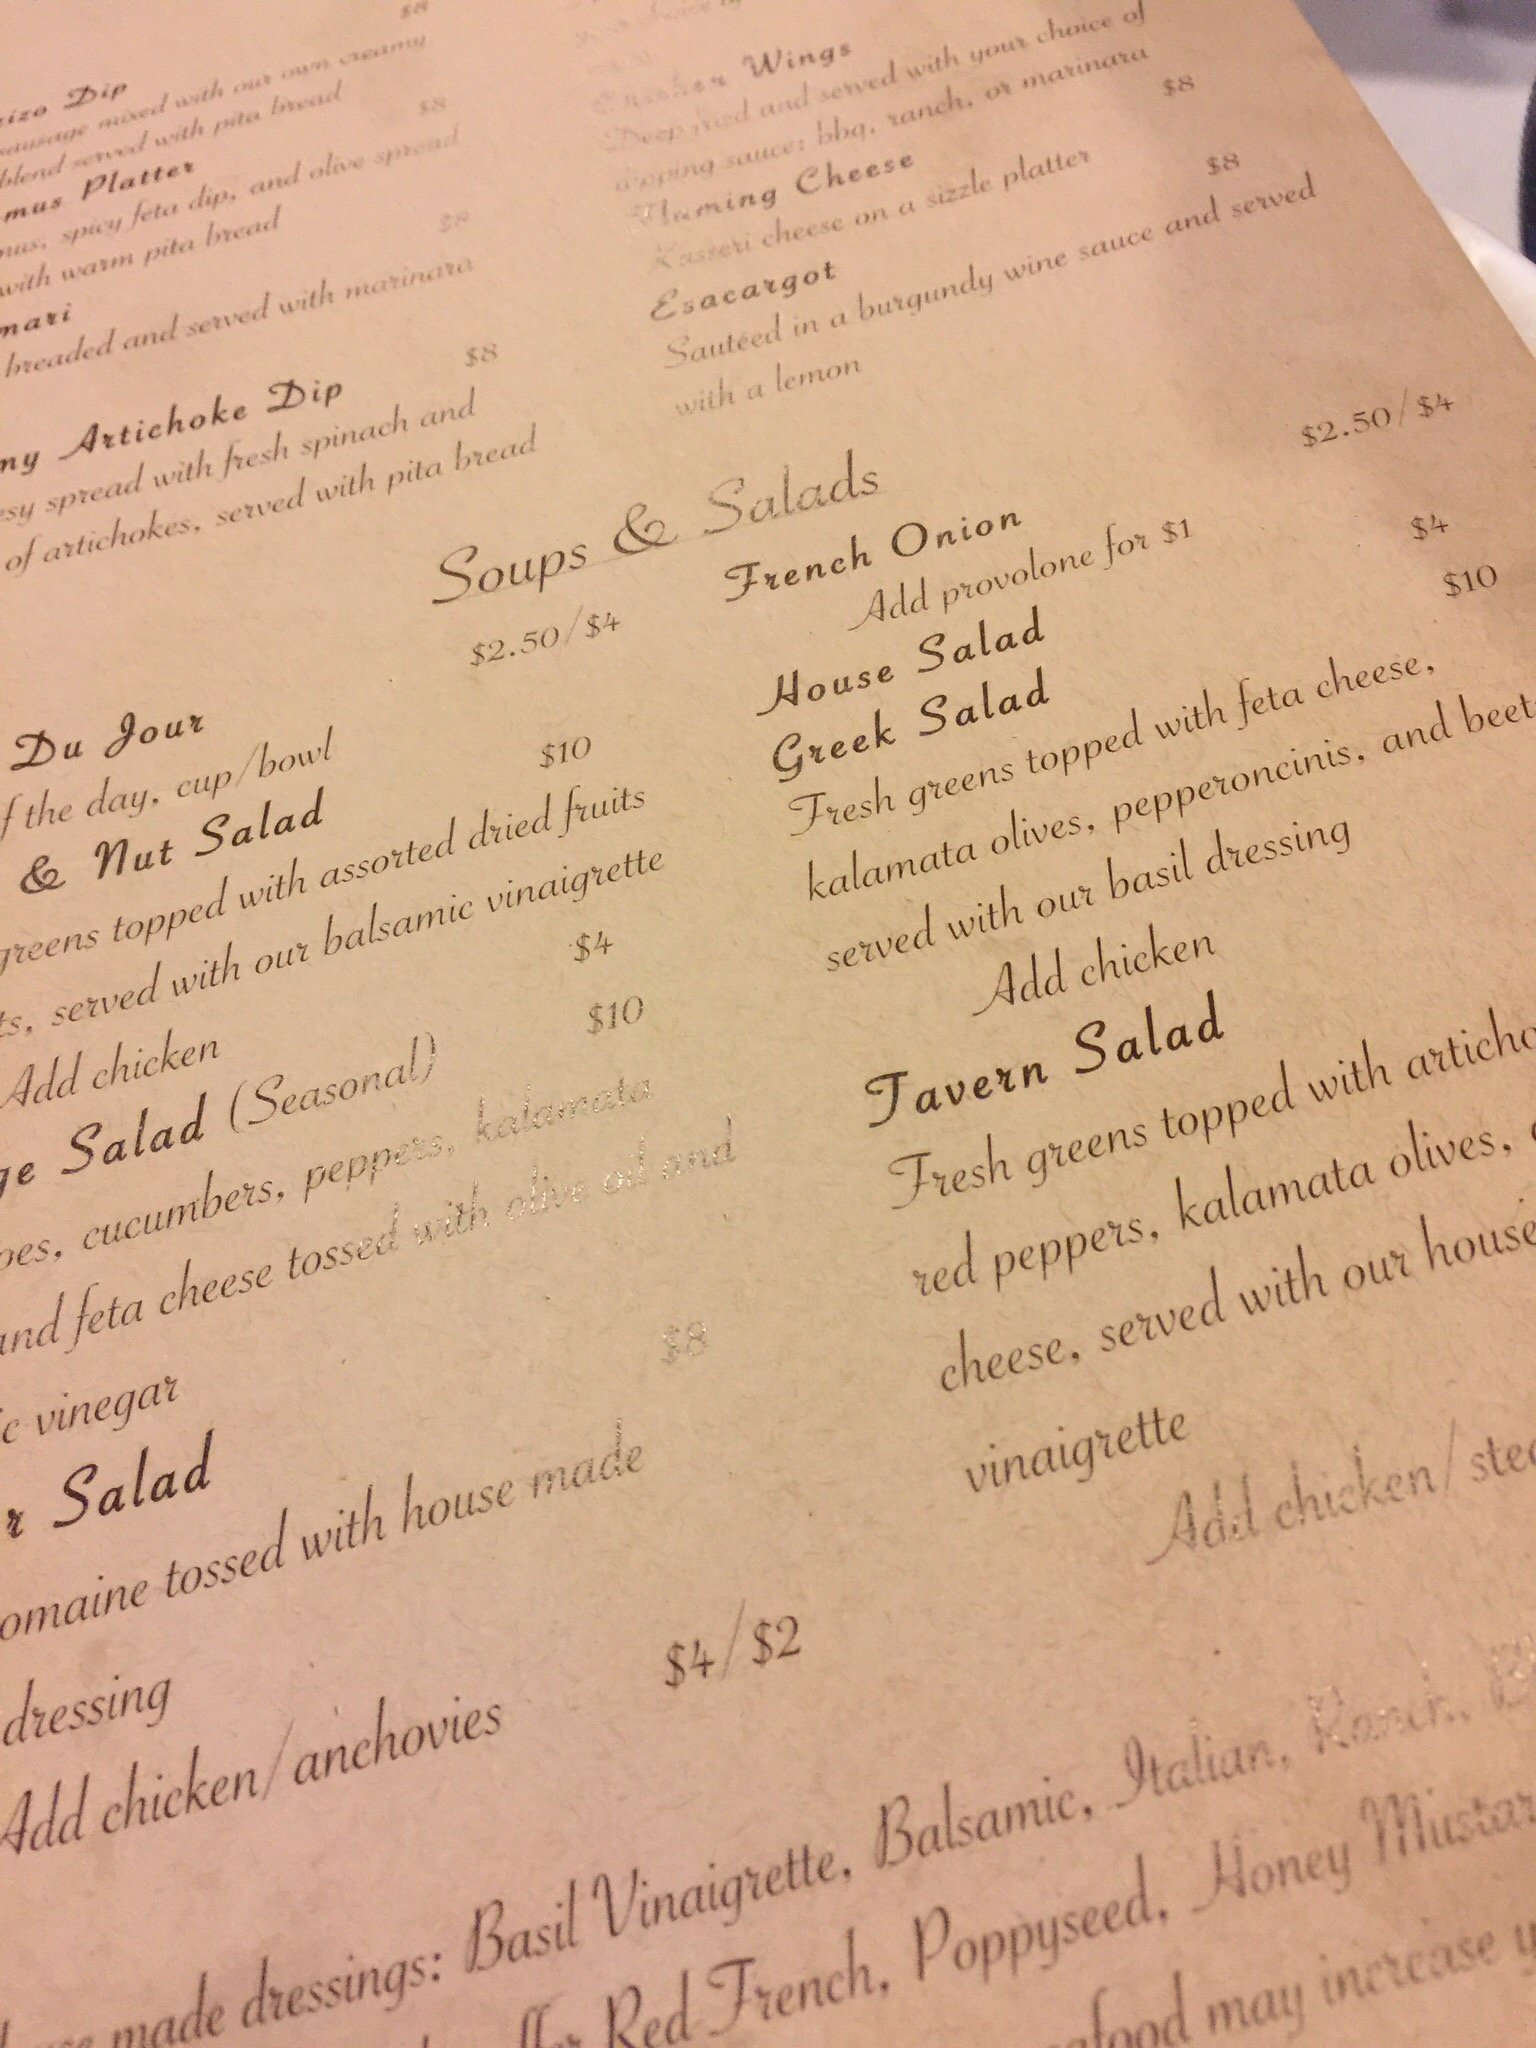 $8
Dip
sausage mixed with our own creamy
blend served with pita bread
$8
Platter
spicy feta dip, and olive spread
with warm pita bread
$8
breaded and served with marinara
$8
Artichoke Dip
spread with fresh spinach and
of artichokes, served with pita bread
Wings
Deep fried and served with your choice of
dipping sauce: bbq, ranch, or marinara
$8
Flaming Cheese
Kasseri cheese on a sizzle platter
$8
Esacargot
Sautéed in a burgundy wine sauce and served
with a lemon
Soups & Salads
$2.50/$4
Du Jour
the day, cup/bowl
$10
& Nut Salad
greens topped with assorted dried fruits
served with our balsamic vinaigrette
$4
Add chicken
$10
Salad (Seasonal)
cucumbers, peppers, kalamata
and feta cheese tossed with olive oil and
vinegar
$8
Salad
tossed with house made
dressing
$4/$2
Add chicken/anchovies
$2.50/$4
French Onion
Add provolone for $1
$4
House Salad
$10
Greek Salad
Fresh greens topped with feta cheese,
kalamata olives, pepperoncinis, and
served with our basil dressing
Add chicken
Tavern Salad
Fresh greens topped with
red peppers, kalamata olives,
cheese, served with our house
vinaigrette
Add chicken/
made dressings: Basil Vinaigrette, Balsamic, Italian, Ranch,
Red French, Poppyseed, Honey
may increase